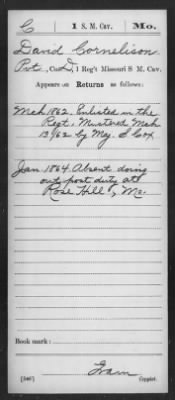 C 1 S. M. Cav. Mo.
David Cornelison
Pvt., Co. D, 1 Reg't Missouri S. M. Cav.
Appears on Returns as follows:
Mch 1862, Enlisted in the
Regt, Mustered Mch
13/62 by Maj. S Cox
Jan 1864 Absent doing
out post duty at
Rose Hill, Mo.
Book mark:
(546)
Copyist.